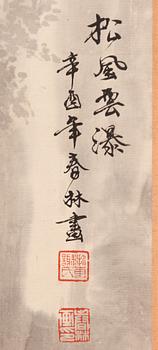 松風雲瀑
辛酉年春林畫